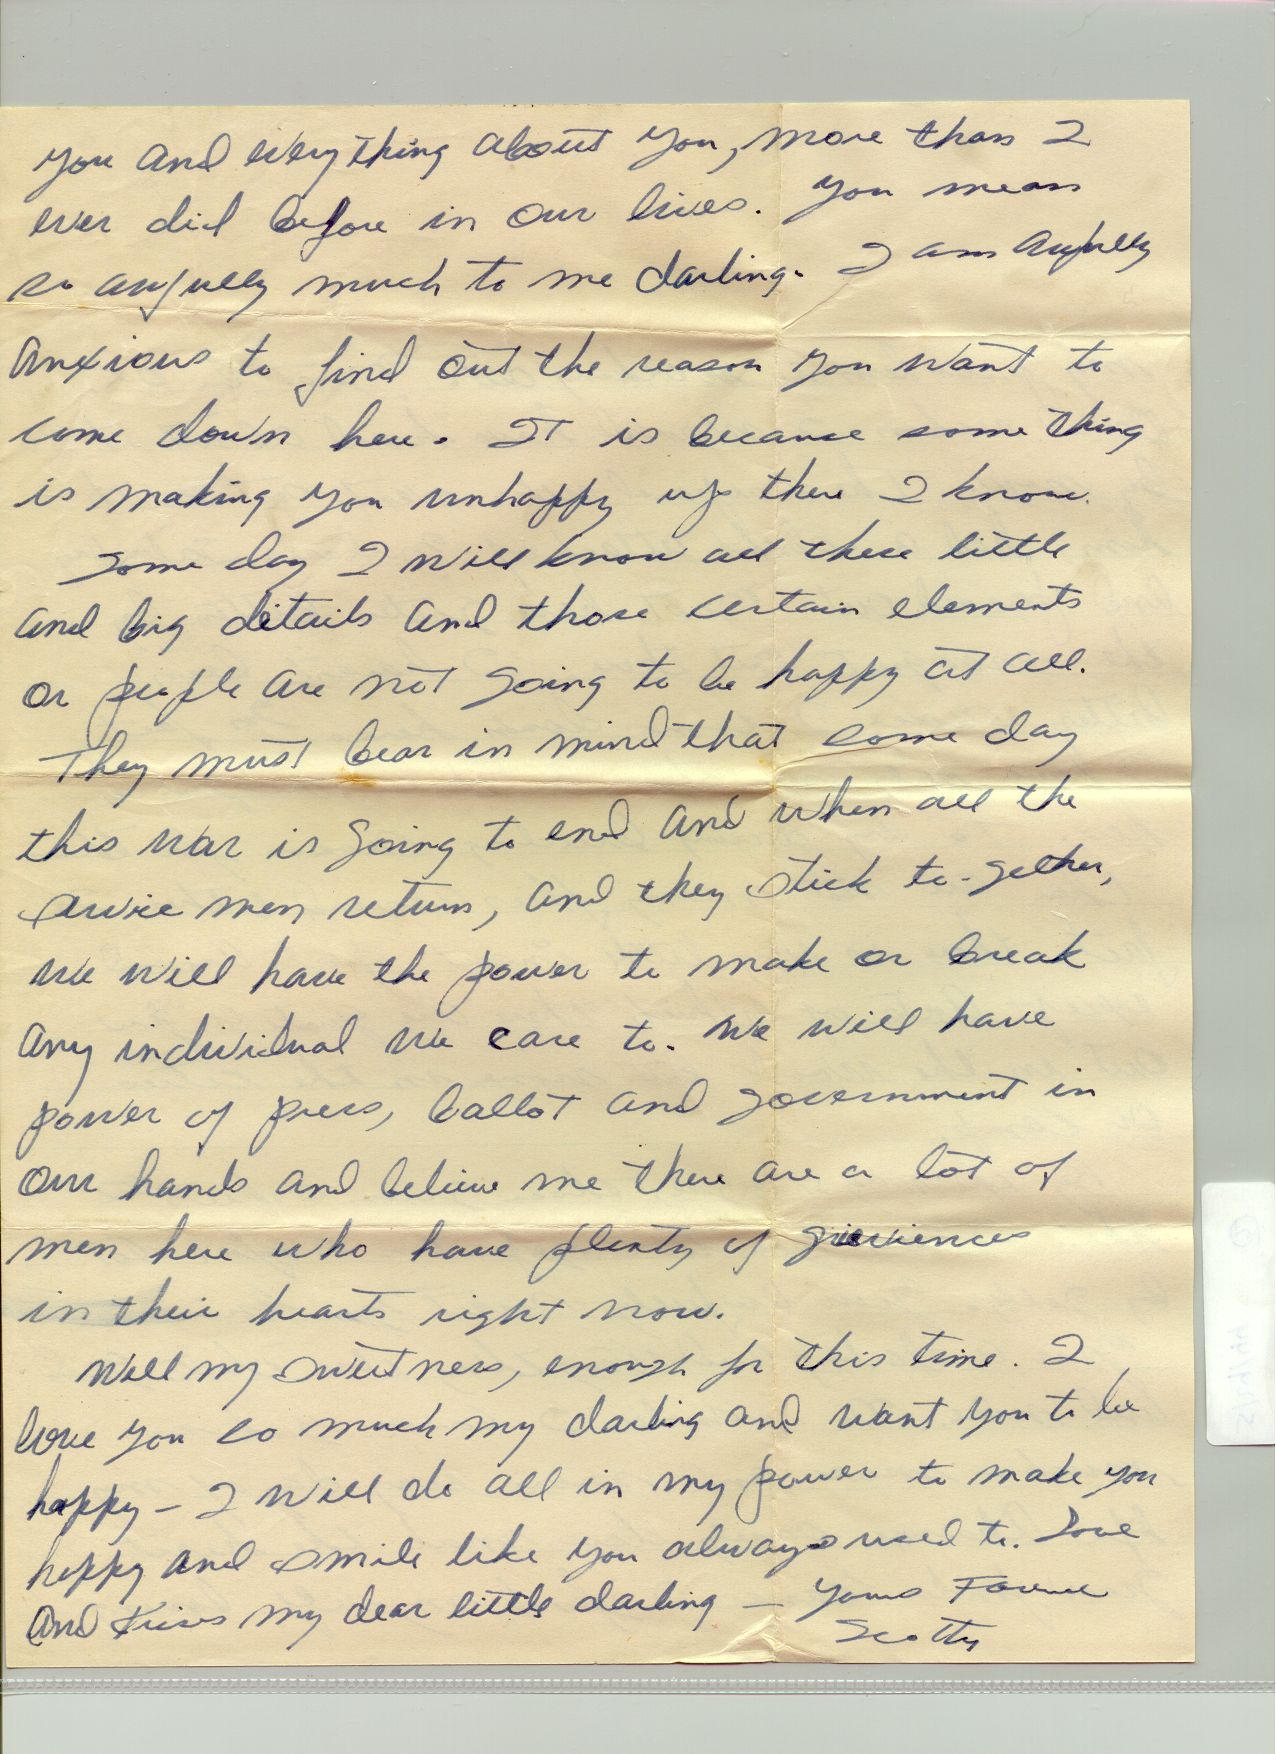 you and everything about you, more than I
ever did before in our lives. You mean
so awfully much to me darling. I am awfully
anxious to find out the reason you want to
come down here. It is because something
is making you unhappy up there I know.
Some day I will know all these little
and big details and those certain elements
or people are not going to be happy at all.
They must bear in mind that some day
this war is going to end and when all the
service men return, and they stick to-gether,
we will have the power to make or break
any individual we care to. We will have
power of press, ballot and government in
our hands and believe me there are a lot of
men here who have plenty of grieviences
in their hearts right now.
Well my sweetness, enough for this time. I
love you so much my darling and want you to be
happy - I will do all in my power to make you
happy and smile like you always used to. Love
and Kisses my dear little darling - Yours Forever
Scotty